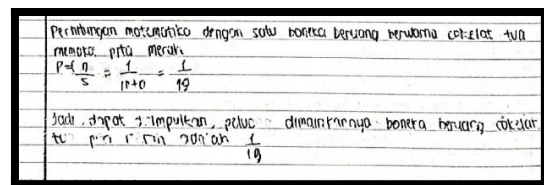 Perhitungan matematika dengan satu boneka beruang berwarna cokelat tua
memakai pita merah
P = n/s = 1/ = 1/19
Jadi, dapat disimpulkan, dimainkannya boneka beruang cokelat
1/19